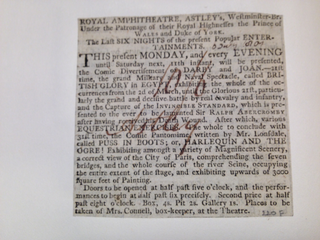 ROYAL AMPHITHEATRE, ASTLEY's, Westminster-Br.
Under the Patronage of their Royal Highnesses the Prince of
WALES and DUKE of YORK.
The Last SIX NIGHTS of the present Popular ENTER-
TAINMENTS.
THIS present MONDAY, and every EVENING
until Saturday next, 11th instant, will be presented,
the Comic Divertisement of DARBY and JOAN.
time, the grand Military Naval Spectacle, called BRI-
TISH GLORY in EGYPT; exhibiting the whole of the oc-
currences from the 2d of March, until the Glorious 21st, particu-
larly the grand and decisive battle by real cavalry and infantry,
and the Capture of the INVINCIBLE STANDARD, which is pre-
sented to the ever to be lamented Sir RALPH ABERCROMBY
after having received his Death Wound. After which, various
EQUESTRIAN EXERCISES. The whole to conclude with
31st time, the Comic Pantomime written by Mr. Lonsdale,
called PUSS IN BOOTS; or, HARLEQUIN AND THE
OGRE! Exhibiting amongst a variety of Magnificent Scenery,
a correct view of the City of Paris, comprehending the seven
bridges, and the whole course of the river Seine, occupying
the entire extent of the stage, and exhibiting upwards of 3000
square feet of Painting.
Doors to be opened at half past five o'clock, and the perfor-
mances to begin at half past six precisely. Second price at half
past eight o'clock. Box, 4s. Pit 2s. Gallery 1s. Places to be
taken of Mrs. Connell, box-keeper, at the Theatre.